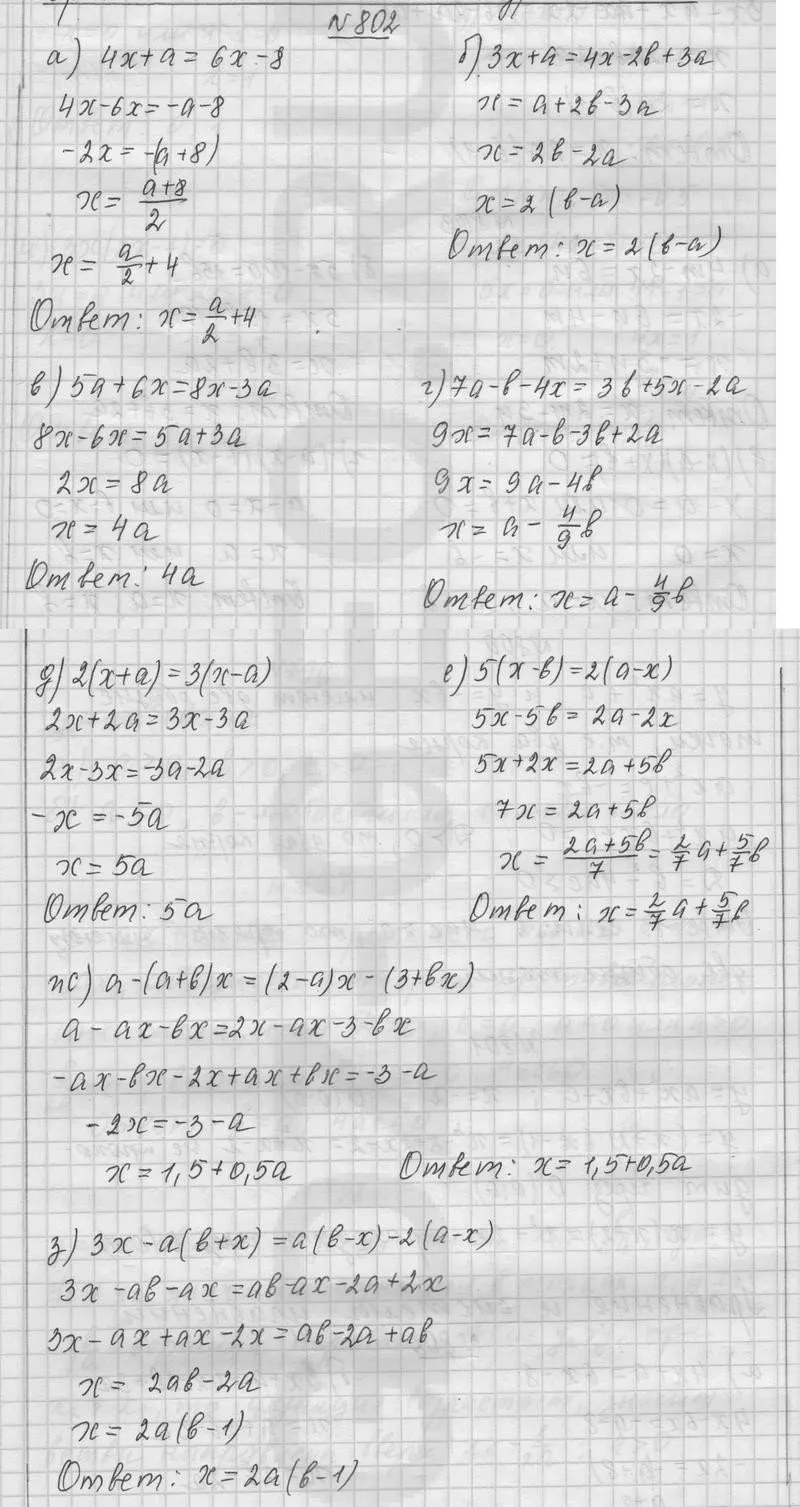 №802
а) 4x+a=6x-8
4x-6x=-a-8
-2x=-(a+8)
x=\frac{a+8}{2}
x=\frac{a}{2}+4
Ответ: x=\frac{a}{2}+4
б) 3x+a=4x-2b+3a
x=a+2b-3a
x=2b-2a
x=2(b-a)
Ответ: x=2(b-a)
в) 5a+6x=8x-3a
8x-6x=5a+3a
2x=8a
x=4a
Ответ: 4a
г) 7a-b-4x=3b+5x-2a
9x=7a-b-3b+2a
9x=9a-4b
x=a-\frac{4}{9}b
Ответ: x=a-\frac{4}{9}b
д) 2(x+a)=3(x-a)
2x+2a=3x-3a
2x-3x=-3a-2a
-x=-5a
x=5a
Ответ: 5a
е) 5(x-b)=2(a-x)
5x-5b=2a-2x
5x+2x=2a+5b
7x=2a+5b
x=\frac{2a+5b}{7}=\frac{2}{7}a+\frac{5}{7}b
Ответ: x=\frac{2}{7}a+\frac{5}{7}b
ж) a-(a+b)x=(2-a)x-(3+bx)
a-ax-bx=2x-ax-3-bx
-ax-bx-2x+ax+bx=-3-a
-2x=-3-a
x=1,5+0,5a
Ответ: x=1,5+0,5a
з) 3x-a(b+x)=a(b-x)-2(a-x)
3x-ab-ax=ab-ax-2a+2x
3x-ax+ax-2x=ab-2a+ab
x=2ab-2a
x=2a(b-1)
Ответ: x=2a(b-1)